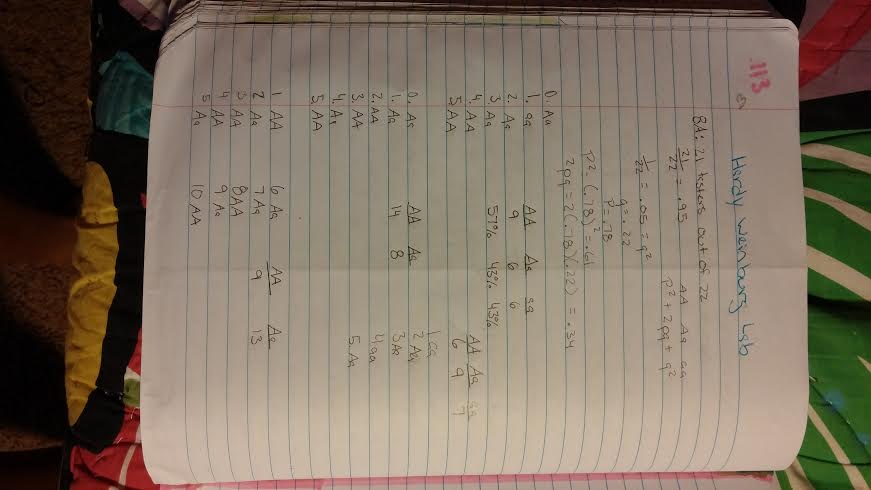 113
Hardy Weinburg Lab
BA: 21 tasters out of 22
21/22 = .95 AA Aa aa
p² + 2pq + q²
1/22 = .05 = q²
q = .22
p = .78
p² = (.78)² = .61
2pq = 2(.78)(.22) = .34
0. Aa
1. aa AA Aa aa
2. Aa 9 6 6
3 Aa 57% 43% 43%
4. AA AA Aa aa
5 AA 6 9 7
1 aa
0. Aa AA Aa 2 Aa
1. Aa 14 8 3 Aa
2. AA 4 aa
3. AA 5. Aa
4. Aa
5. AA
1. AA 6 Aa AA Aa
2 Aa 7 Aa 9 13
3 AA 8 AA
4 AA 9 Aa
5 Aa 10 AA